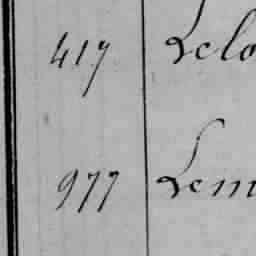 417 Lelo
977 Lem